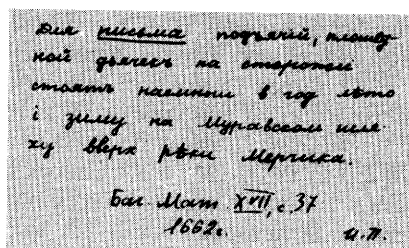 Для письма подъячей, площед
ной дьячекъ на сторожи
стоятъ наемнии в год лѣто
і зиму на Муравском шля
ху вверх рѣки Мерчика.
Баг. Мат. XVII, с. 37
1662 г. И.П.